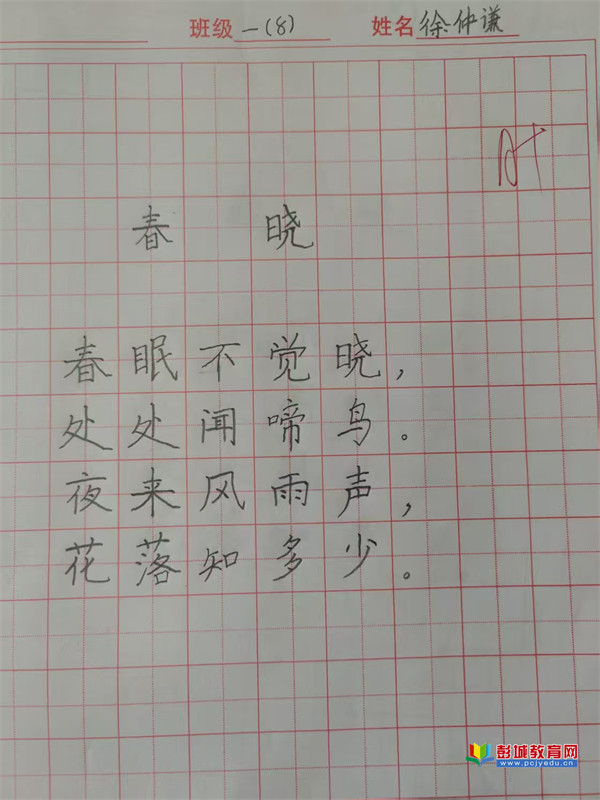 班级 一(8) 姓名 徐仲谦
A+
春 晓
春眠不觉晓，
处处闻啼鸟。
夜来风雨声，
花落知多少。
彭城教育网
www.pcjyedu.cn